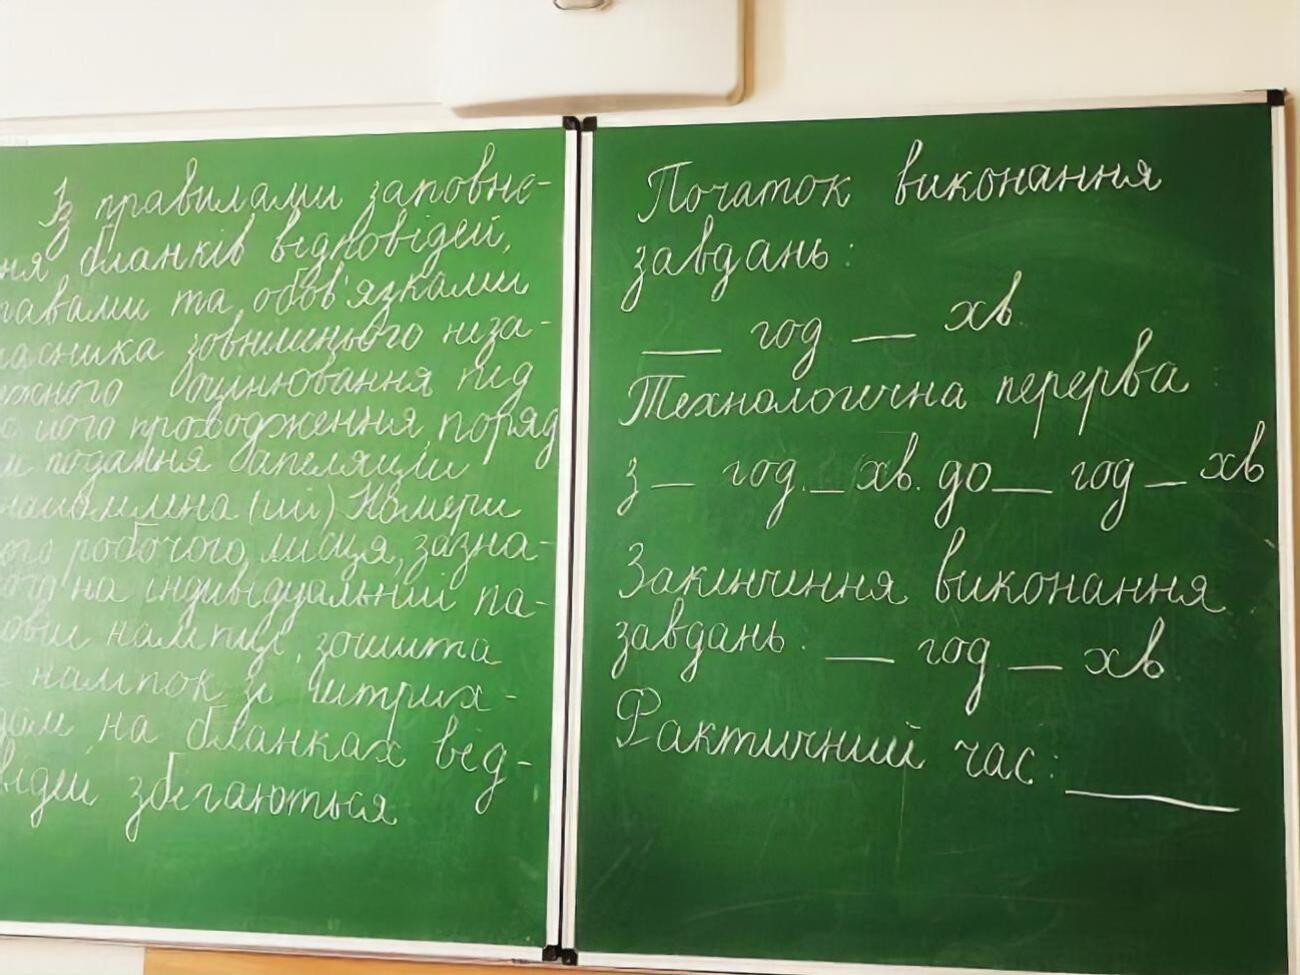 Із правилами заповне-
ня бланків відповідей,
равами та обов'язками
часника зовнішнього неза-
ежного оцінювання під
с його проходження, поряд
м подання апеляції
найомлена (ий) Номери
ого робочого місця, зазна-
ого на індивідуальній па-
наліпці, зошита
наліпок зі штрих-
дом на бланках від-
відей збігаються
Початок виконання
завдань:
__ год __ хв
Технологічна перерва
з __ год. __ хв. до __ год __ хв
Закінчення виконання
завдань: __ год __ хв
Фактичний час: ____